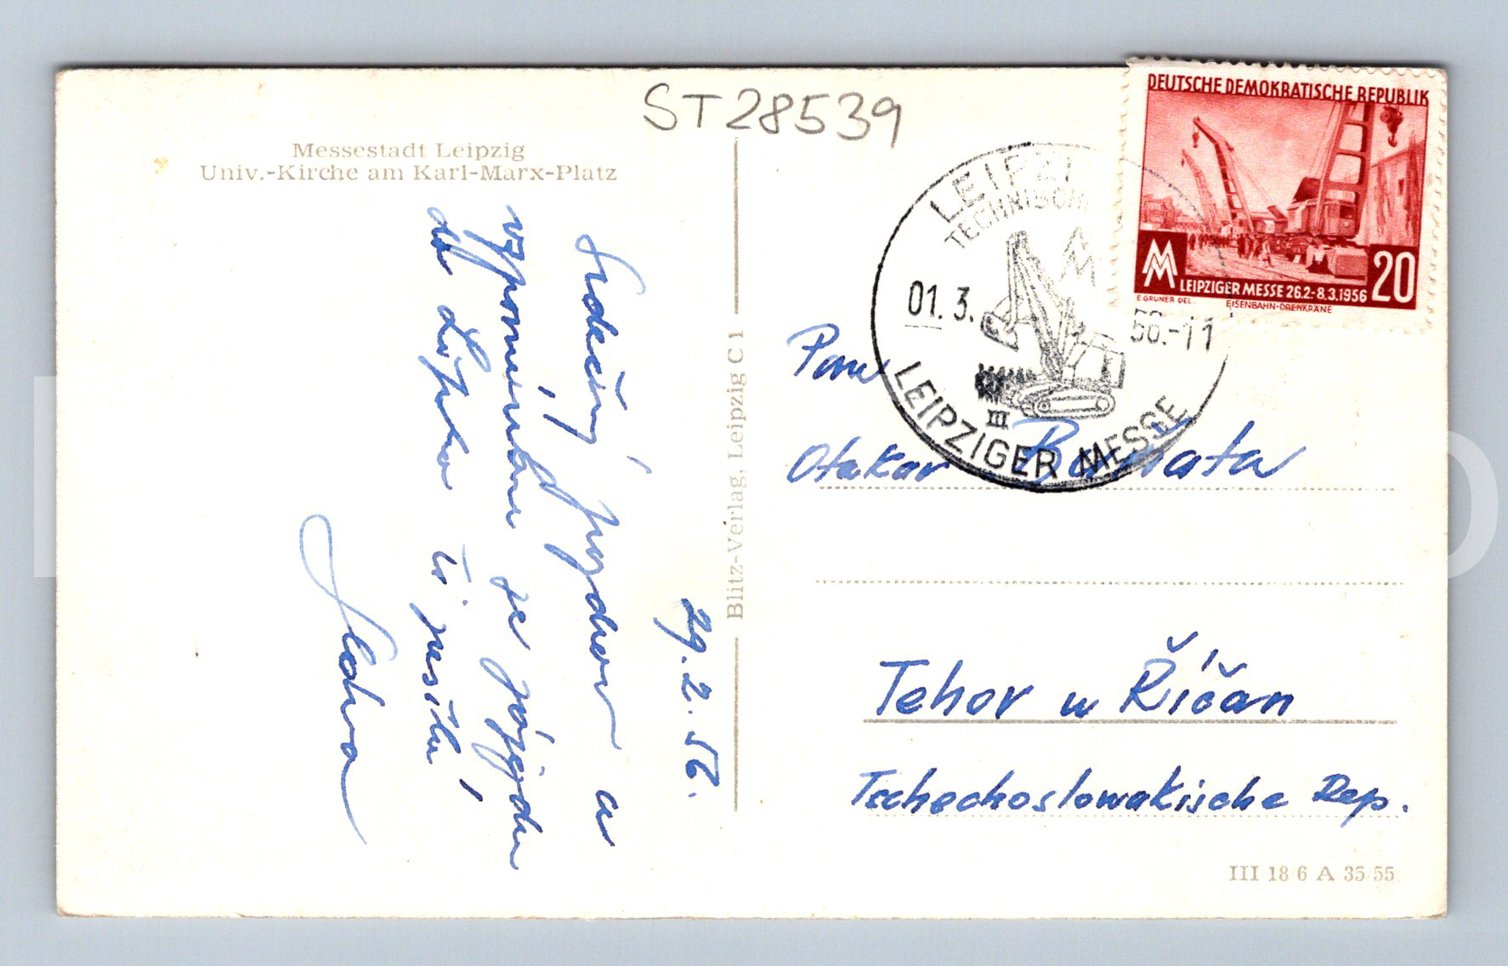 ST28539
Messestadt Leipzig
Univ.-Kirche am Karl-Marx-Platz
29.2.56.
Srdečný pozdrav a
vzpomínku ze zájezdu
do Lipska to
Blitz-Verlag, Leipzig C 1
DEUTSCHE DEMOKRATISCHE REPUBLIK
LEIPZIGER MESSE 26.2.-8.3.1956
20
E GRUNER DEL.
EISENBAHN-DREHKRANE
LEIPZI
TECHNISCH
01.3.
56.-11
III
LEIPZIGER MESSE
Pan
Otakar
Tehov u Říčan
Tschechoslowakische Rep.
III 18 6 A 35 55